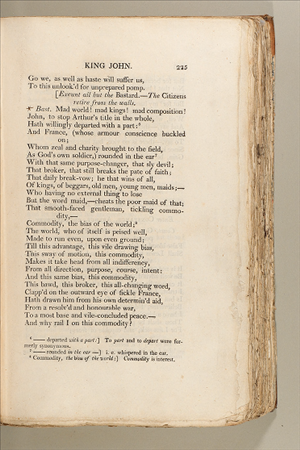 KING JOHN. 225
Go we, as well as haste will suffer us,
To this unlook'd for unprepared pomp.
[Exeunt all but the Bastard.—The Citizens
retire from the walls.
* Bast. Mad world! mad kings! mad composition!
John, to stop Arthur's title in the whole,
Hath willingly departed with a part:¹
And France, (whose armour conscience buckled
on;
Whom zeal and charity brought to the field,
As God's own soldier,) rounded in the ear²
With that same purpose-changer, that sly devil;
That broker, that still breaks the pate of faith;
That daily break-vow; he that wins of all,
Of kings, of beggars, old men, young men, maids;—
Who having no external thing to lose
But the word maid,—cheats the poor maid of that;
That smooth-faced gentleman, tickling commo-
dity,—
Commodity, the bias of the world;³
The world, who of itself is peised well,
Made to run even, upon even ground;
Till this advantage, this vile drawing bias,
This sway of motion, this commodity,
Makes it take head from all indifferency,
From all direction, purpose, course, intent:
And this same bias, this commodity,
This bawd, this broker, this all-changing word,
Clapp'd on the outward eye of fickle France,
Hath drawn him from his own determin'd aid,
From a resolv'd and honourable war,
To a most base and vile-concluded peace.—
And why rail I on this commodity?
¹ —— departed with a part:] To part and to depart were for-
merly synonymous.
² —— rounded in the ear —] i. e. whispered in the ear.
³ Commodity, the bias of the world;] Commodity is interest.